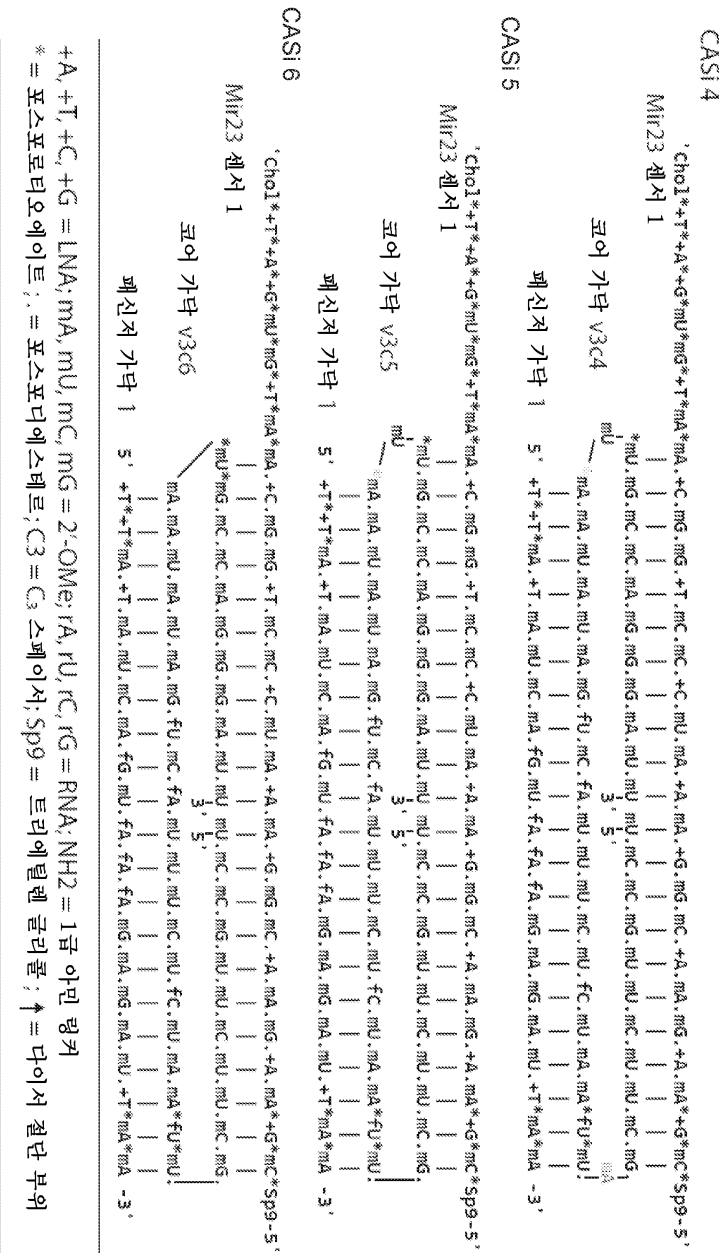 CASi 4
'Chol*+T*+A*+G*mU*mG*+T*mA*mA.+C.mG.mG.+T.mC.mC.+C.mU.mA.+A.mA.+G.mG.mC.+A.mA.mG.+A.mA*+G*mC*Sp9-5'
Mir23 센서 1
*mU.mG.mC.mC.mA.mG.mG.mG.mA.mU.mU mU.mC.mC.mG.mU.mU.mC.mU.mU.mC.mG
mU 3' 5' mA
코어 가닥 v3c4
mA.mA.mU.mA.mU.mA.mG.fU.mC.fA.mU.mU.mU.mC.mU.fC.mU.mA.mA*fU*mU.
패신저 가닥 1 5' +T*+T*mA.+T.mA.mU.mC.mA.fG.mU.fA.fA.fA.mG.mA.mG.mA.mU.+T*mA*mA -3'
CASi 5
'Chol*+T*+A*+G*mU*mG*+T*mA*mA.+C.mG.mG.+T.mC.mC.+C.mU.mA.+A.mA.+G.mG.mC.+A.mA.mG.+A.mA*+G*mC*Sp9-5'
Mir23 센서 1
*mU.mG.mC.mC.mA.mG.mG.mG.mA.mU.mU mU.mC.mC.mG.mU.mU.mC.mU.mU.mC.mG.
mU 3' 5'
코어 가닥 v3c5
mA.mA.mU.mA.mU.mA.mG.fU.mC.fA.mU.mU.mU.mC.mU.fC.mU.mA.mA*fU*mU.
패신저 가닥 1 5' +T*+T*mA.+T.mA.mU.mC.mA.fG.mU.fA.fA.fA.mG.mA.mG.mA.mU.+T*mA*mA -3'
CASi 6
'Chol*+T*+A*+G*mU*mG*+T*mA*mA.+C.mG.mG.+T.mC.mC.+C.mU.mA.+A.mA.+G.mG.mC.+A.mA.mG.+A.mA*+G*mC*Sp9-5'
Mir23 센서 1
*mU*mG.mC.mC.mA.mG.mG.mG.mA.mU.mU mU.mC.mC.mG.mU.mU.mC.mU.mU.mC.mG.
3' 5'
코어 가닥 v3c6
mA.mA.mU.mA.mU.mA.mG.fU.mC.fA.mU.mU.mU.mC.mU.fC.mU.mA.mA*fU*mU.
패신저 가닥 1 5' +T*+T*mA.+T.mA.mU.mC.mA.fG.mU.fA.fA.fA.mG.mA.mG.mA.mU.+T*mA*mA -3'
+A, +T, +C, +G = LNA; mA, mU, mC, mG = 2'-OMe; rA, rU, rC, rG = RNA; NH2 = 1급 아민 링커
* = 포스포로티오에이트; . = 포스포디에스테르; C3 = C₃ 스페이서; Sp9 = 트리에틸렌 글리콜; ↑ = 다이서 절단 부위